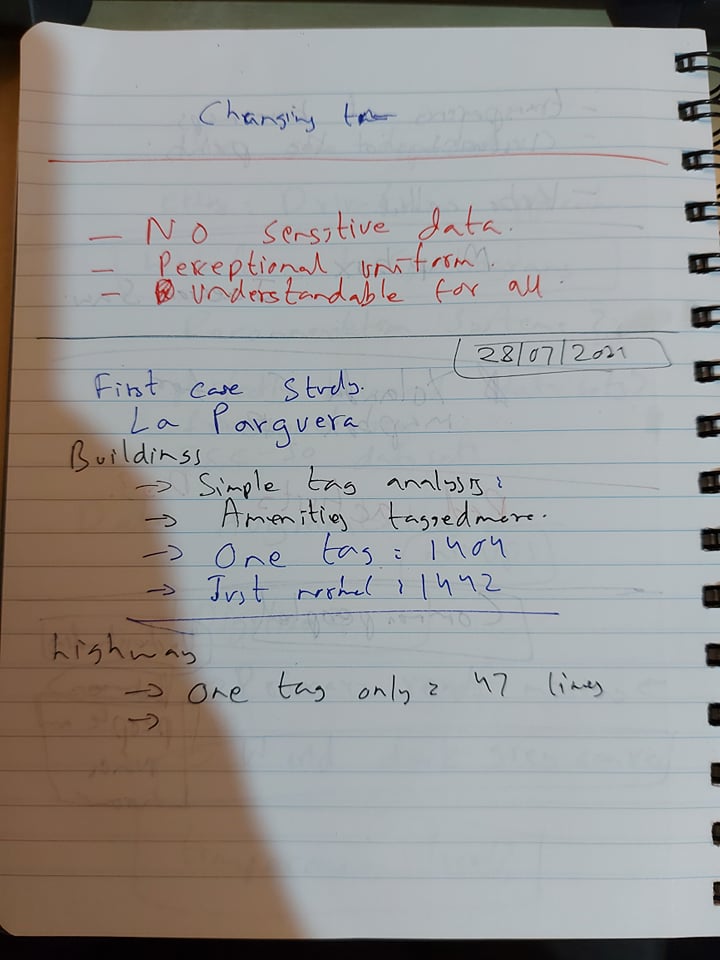 Changing
- NO sensitive data.
- Perceptional uniform.
- understandable for all.
28/07/2021
First case study.
La Parguera
Buildings
-> Simple tag analysis:
-> Amenities tagged more.
-> One tag: 1404
-> Just normal: 1442
highway
-> one tag only: 47 lines
->